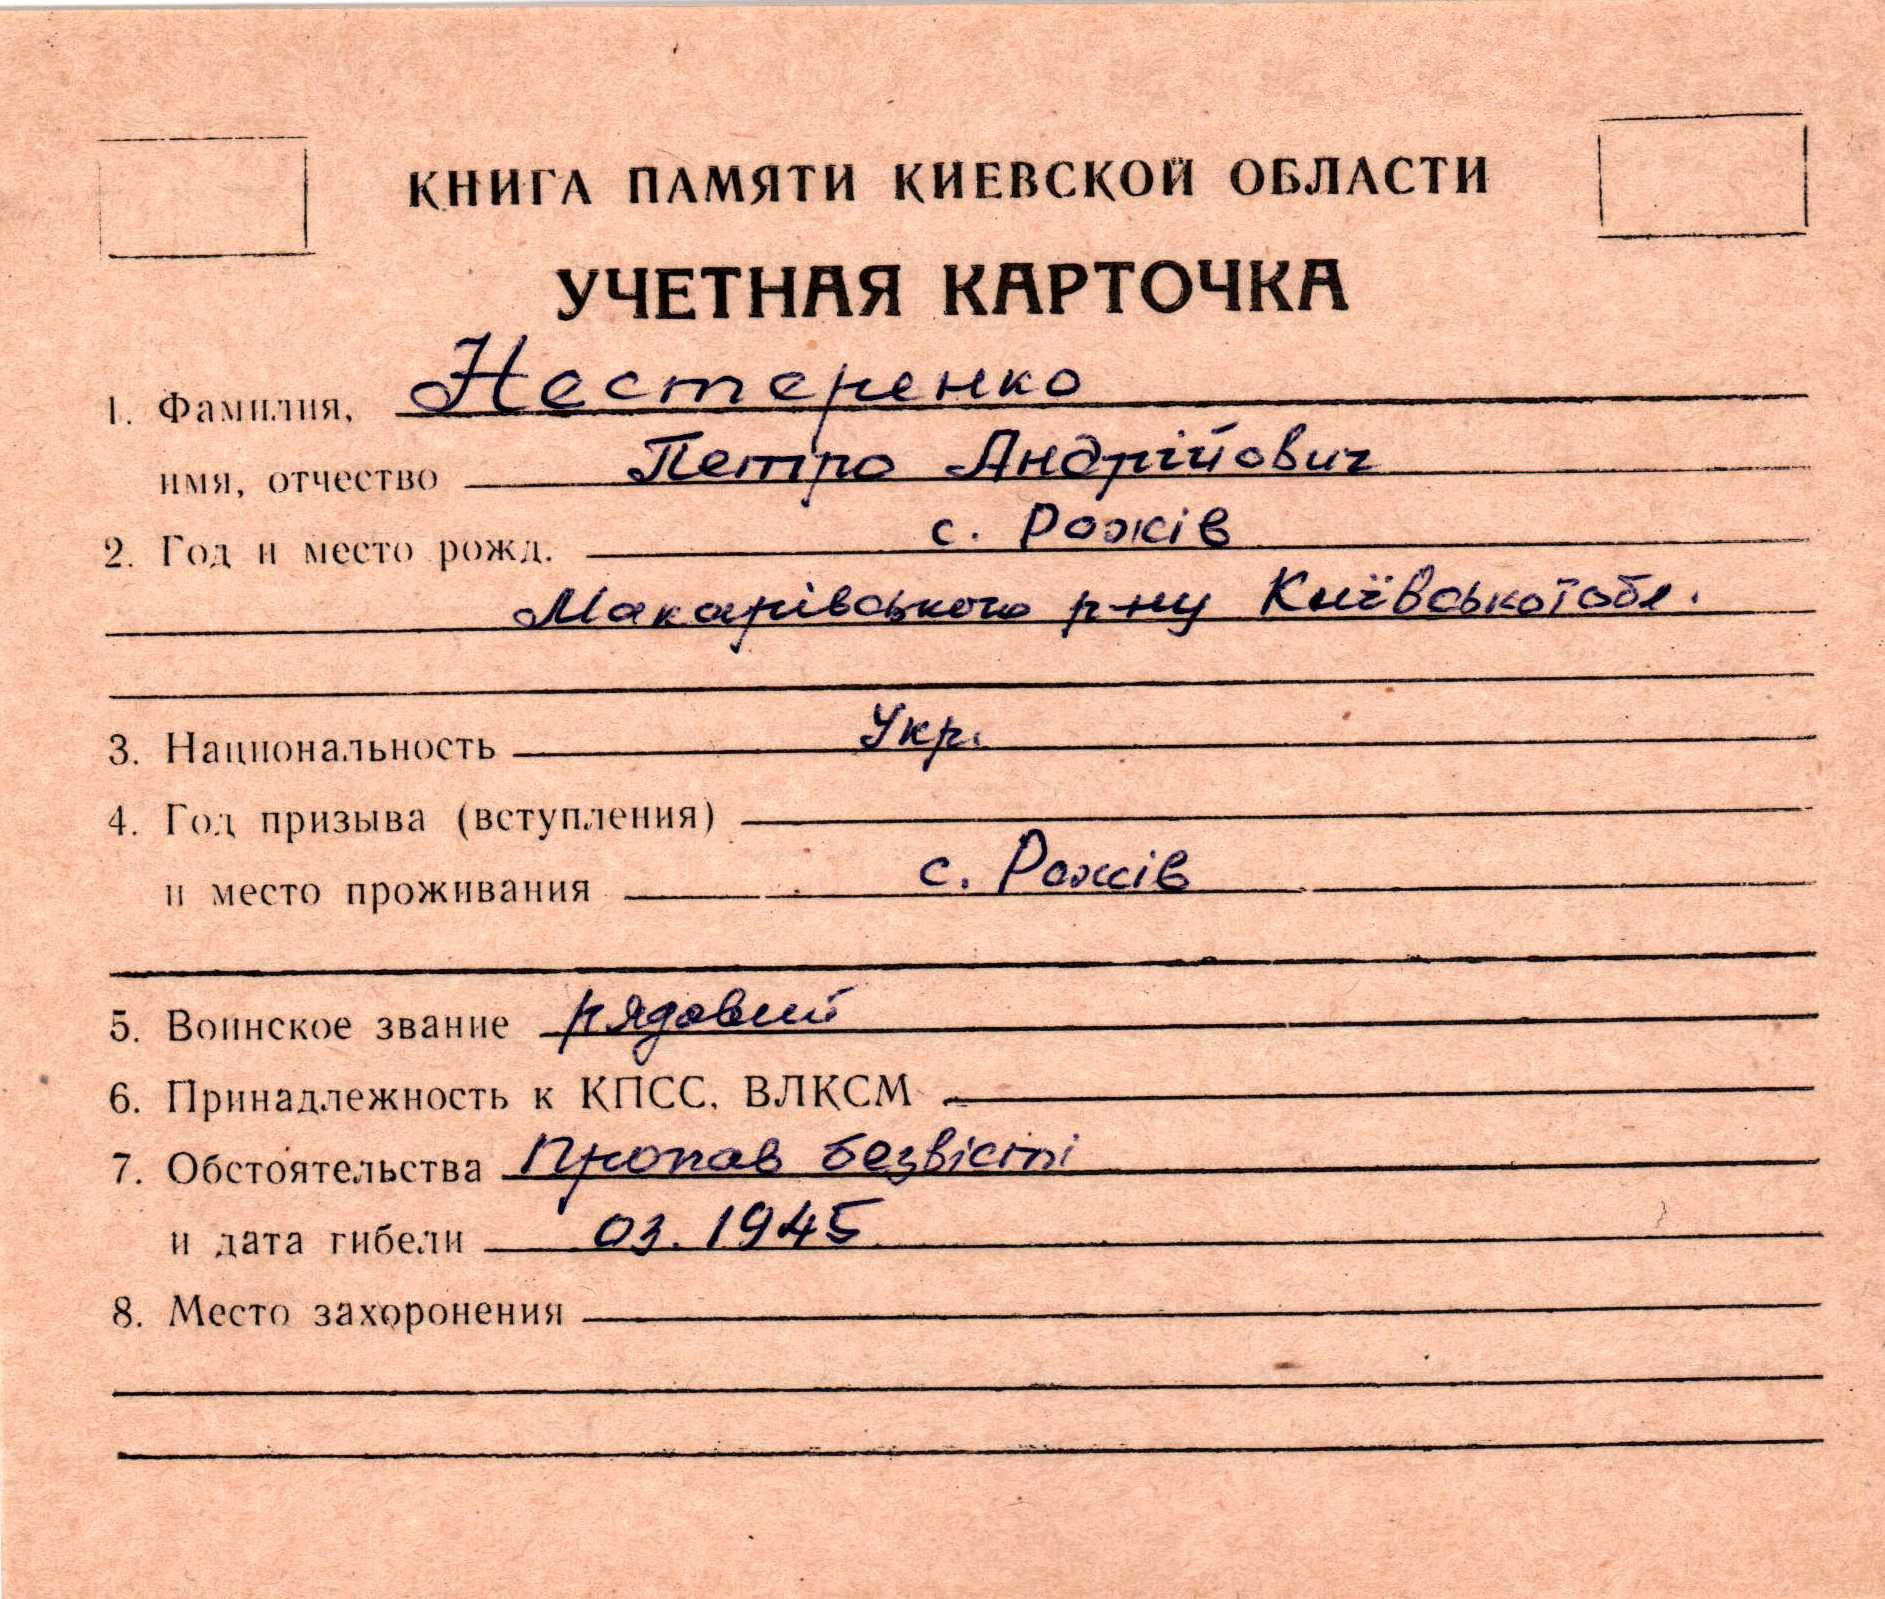 КНИГА ПАМЯТИ КИЕВСКОЙ ОБЛАСТИ
УЧЕТНАЯ КАРТОЧКА
1. Фамилия, Нестеренко
имя, отчество Петро Андрійович
2. Год и место рожд. с. Рожів
Макарівського р-ну Київської обл.
3. Национальность Укр.
4. Год призыва (вступления)
и место проживания с. Рожів
5. Воинское звание рядовий
6. Принадлежность к КПСС, ВЛКСМ
7. Обстоятельства Пропав безвісті
и дата гибели 03.1945
8. Место захоронения